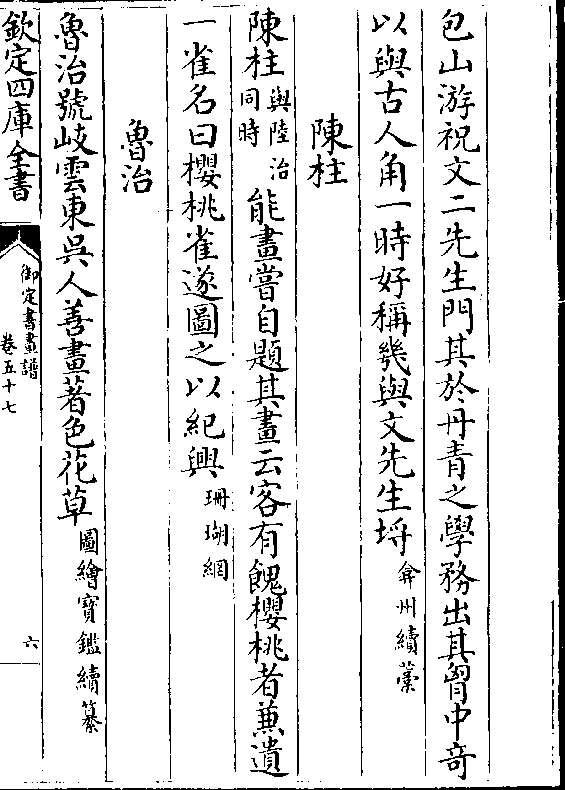 包山游祝文二先生門其於丹青之學務出其胷中竒
以與古人角一時好稱㡬與文先生埒弇州續藁
陳柱
陳柱與陸治同時能畫嘗自題其畫云客有餽櫻桃者兼遺
一雀名曰櫻桃雀遂圖之以紀興珊瑚網
魯治
魯治號岐雲東吳人善畫著色花草圖繪寶鑑續纂
欽定四庫全書
御定書畫譜
卷五十七
六